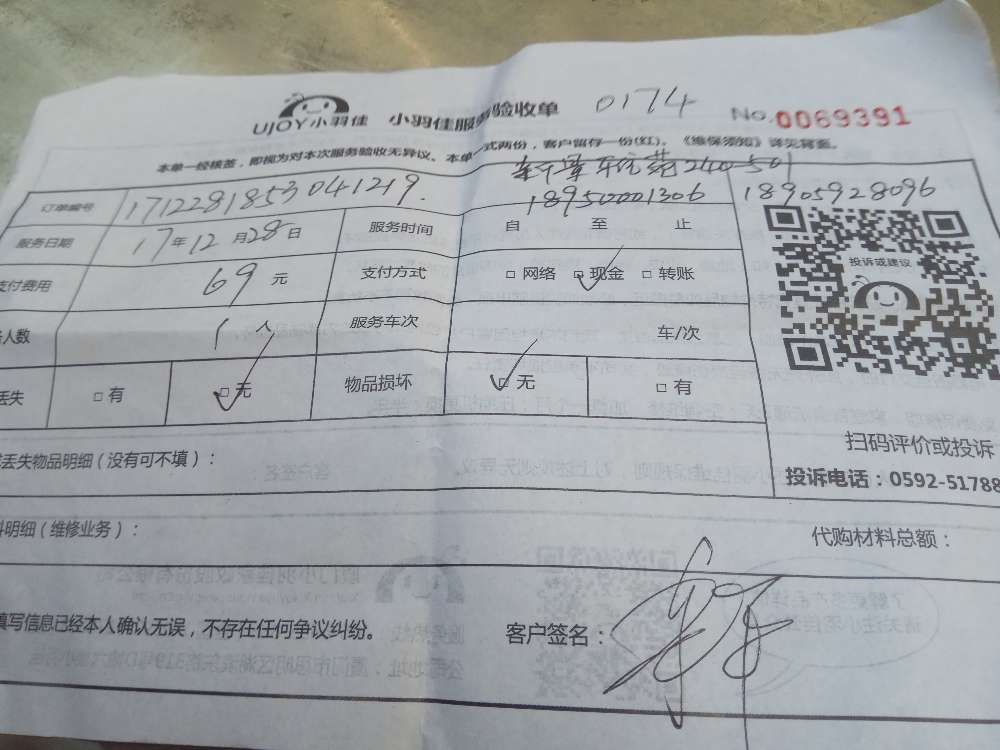 UJOY小羽佳 小羽佳服务验收单 0174 No.0069391
本单一经核签，即视为对本次服务验收无异议。本单一式两份，客户留存一份(红)。《维保须知》详见背面。
240-501
订单编号 1712281853041219. 18950001306 18905928096
服务日期 17年12月28日 服务时间 自 至 止
投诉或建议
支付费用 69元 支付方式 □网络 □现金 □转账
人数 1人 服务车次 车/次
丢失 □有 □无 物品损坏 □无 □有
扫码评价或投诉
丢失物品明细（没有可不填）：
投诉电话：0592-51788
料明细（维修业务）： 代购材料总额：
填写信息已经本人确认无误，不存在任何争议纠纷。 客户签名：